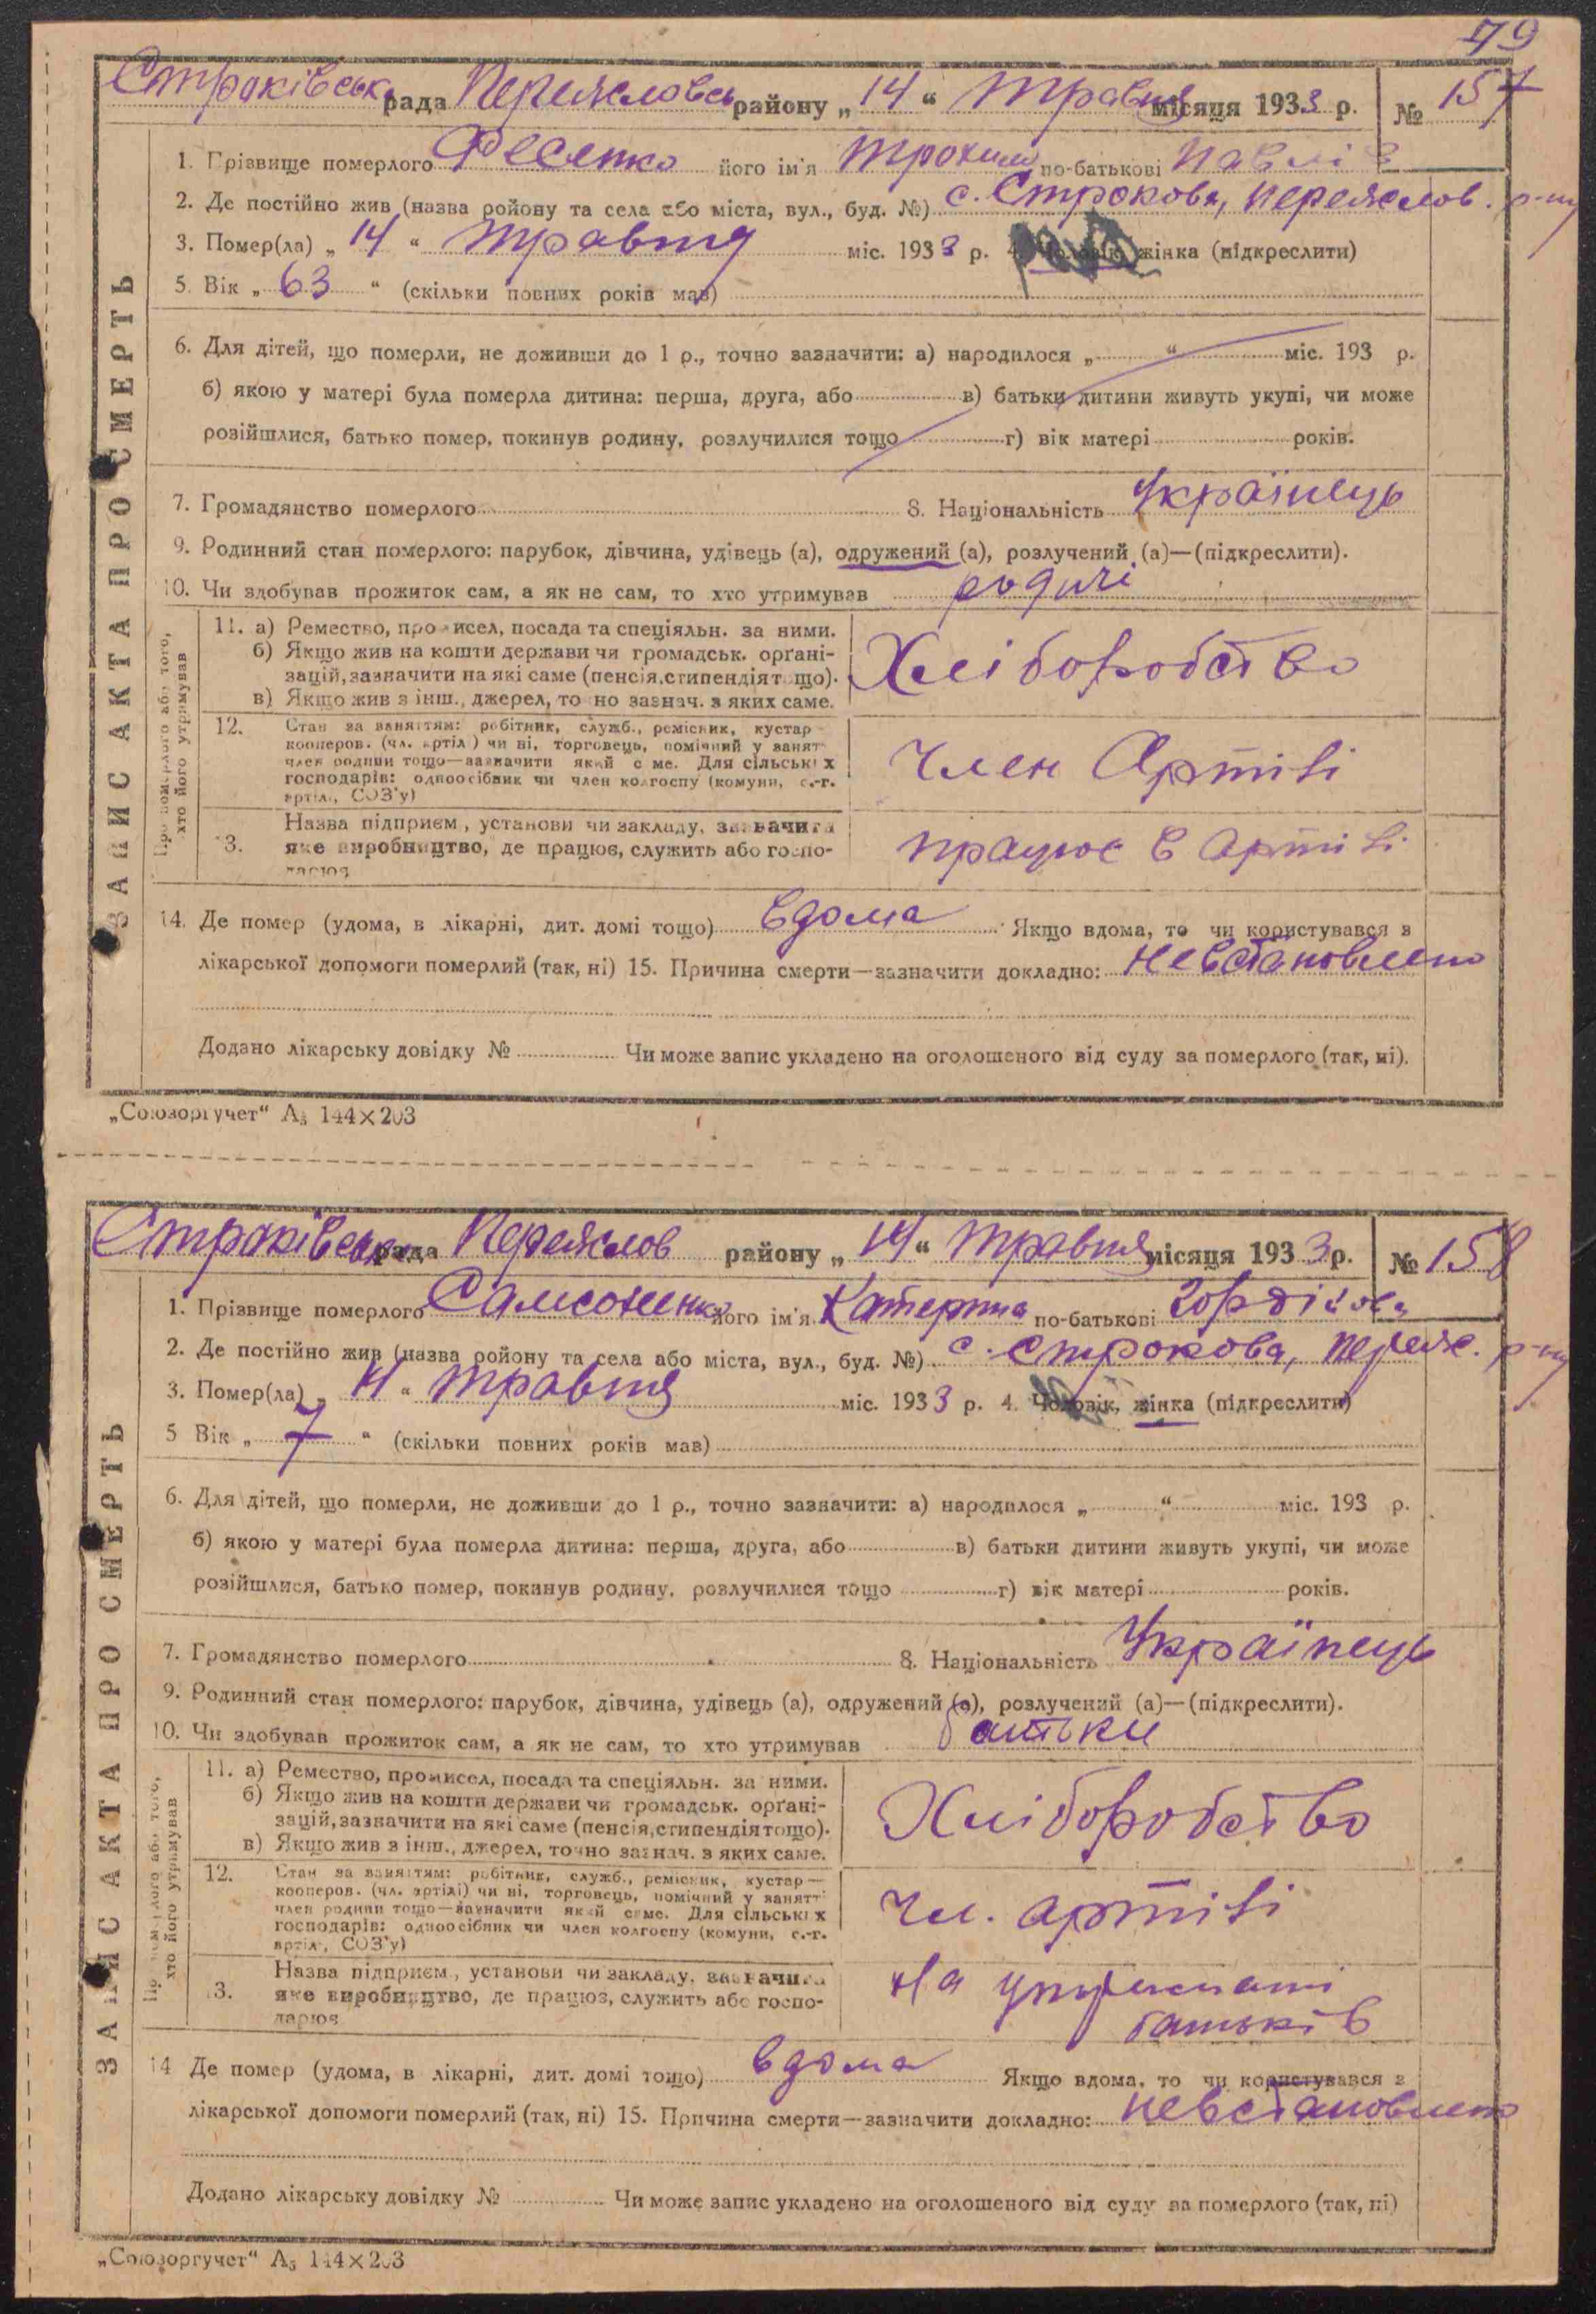 79
Строківськ рада Переяславськ району „ 14 “ Травня місяця 1933 р. № 157
1. Прізвище померлого Фесенко його ім'я Трохим по-батькові Павлів
2. Де постійно жив (назва ройону та села або міста, вул., буд. №) с. Строкова, Переяслов. р-ну
3. Помер(ла) „ 14 “ травня міс. 1933 р. 4. Чоловік, жінка (підкреслити)
5. Вік „ 63 “ (скільки повних років мав)
6. Для дітей, що померли, не доживши до 1 р., точно зазначити: а) народилося „ “ міс. 193 р.
б) якою у матері була померла дитина: перша, друга, або в) батьки дитини живуть укупі, чи може
розійшлися, батько помер, покинув родину, розлучилися тощо г) вік матері років.
7. Громадянство померлого 8. Національність Українець
9. Родинний стан померлого: парубок, дівчина, удівець (а), одружений (а), розлучений (а)—(підкреслити).
10. Чи здобував прожиток сам, а як не сам, то хто утримував родичі
ЗАПИС АКТА ПРО СМЕРТЬ
Про померлого або того,
хто його утримував
11. а) Ремество, промисел, посада та спеціяльн. за ними.
б) Якщо жив на кошти держави чи громадськ. орґані-
зацій, зазначити на які саме (пенсія, стипендія тощо).
в) Якщо жив з інш., джерел, точно зазнач. з яких саме.
Хліборобство
12. Стан за заняттям: робітник, служб., ремісник, кустар
кооперов. (чл. артілі) чи ні, торговець, помічний у занят
член родини тощо—зазначити який саме. Для сільських
господарів: одноосібник чи член колгоспу (комуни, с.-г.
артілі, СОЗ'у)
Член Артілі
13. Назва підприєм., установи чи закладу, зазначити
яке виробництво, де працює, служить або госпо-
дарює
працює в артілі
14. Де помер (удома, в лікарні, дит. домі тощо) вдома Якщо вдома, то чи користувався з
лікарської допомоги померлий (так, ні) 15. Причина смерти—зазначити докладно: невстановлено
Додано лікарську довідку № Чи може запис укладено на оголошеного від суду за померлого (так, ні).
„Союзоргучет“ А5 144×203
Строківськ рада Переяслов району „ 14 “ травня місяця 1933 р. № 158
1. Прізвище померлого Самсоненко його ім'я Катерина по-батькові Гордієва
2. Де постійно жив (назва ройону та села або міста, вул., буд. №) с. Строкова, Переяс. р-ну
3. Помер(ла) „ 14 “ травня міс. 1933 р. 4. Чоловік, жінка (підкреслити)
5 Вік „ 7 “ (скільки повних років мав)
6. Для дітей, що померли, не доживши до 1 р., точно зазначити: а) народилося „ “ міс. 193 р.
б) якою у матері була померла дитина: перша, друга, або в) батьки дитини живуть укупі, чи може
розійшлися, батько помер, покинув родину, розлучилися тощо г) вік матері років.
7. Громадянство померлого 8. Національність Українець
9. Родинний стан померлого: парубок, дівчина, удівець (а), одружений (а), розлучений (а)—(підкреслити).
10. Чи здобував прожиток сам, а як не сам, то хто утримував батьки
ЗАПИС АКТА ПРО СМЕРТЬ
Про померлого або того,
хто його утримував
11. а) Ремество, промисел, посада та спеціяльн. за ними.
б) Якщо жив на кошти держави чи громадськ. орґані-
зацій, зазначити на які саме (пенсія, стипендія тощо).
в) Якщо жив з інш., джерел, точно зазнач. з яких саме.
Хліборобство
12. Стан за заняттям: робітник, служб., ремісник, кустар—
кооперов. (чл. артілі) чи ні, торговець, помічний у занятт
член родини тощо—зазначити який саме. Для сільських
господарів: одноосібник чи член колгоспу (комуни, с.-г.
артілі, СОЗ'у)
Чл. артілі
13. Назва підприєм., установи чи закладу, зазначити
яке виробництво, де працює, служить або госпо-
дарює
На утриманні
батьків
14 Де помер (удома, в лікарні, дит. домі тощо) вдома Якщо вдома, то чи користувався з
лікарської допомоги померлий (так, ні) 15. Причина смерти—зазначити докладно: невстановлено
Додано лікарську довідку № Чи може запис укладено на оголошеного від суду за померлого (так, ні)
„Союзоргучет“ А5 144×203